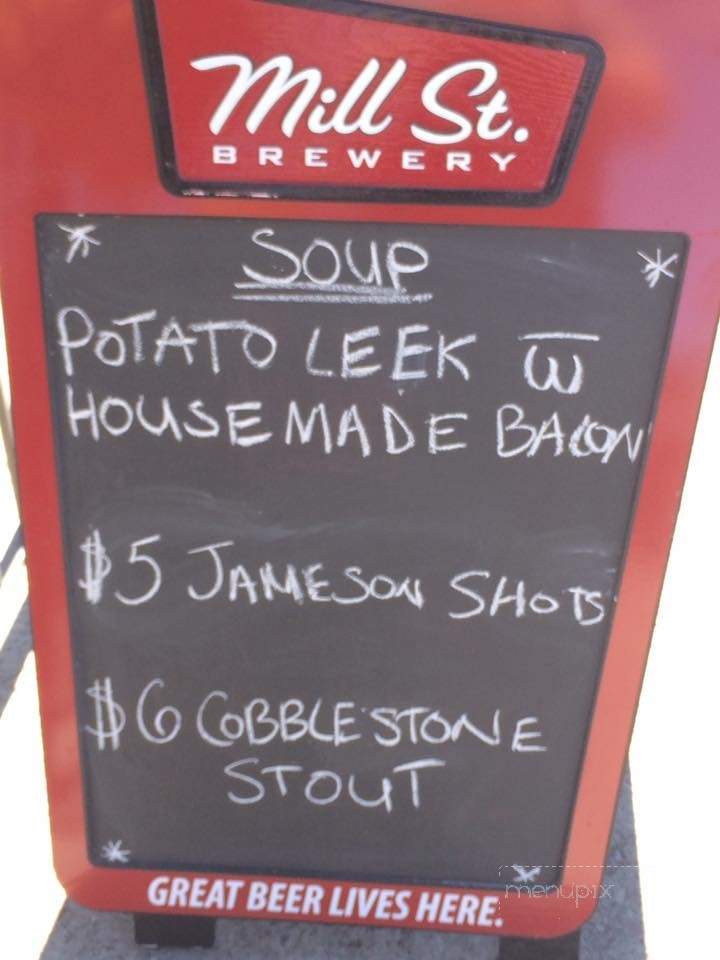 Mill St.
BREWERY
SOUP
POTATO LEEK w̅
HOUSEMADE BACON
$5 JAMESON SHOTS
$6 COBBLESTONE
STOUT
GREAT BEER LIVES HERE.
menupix